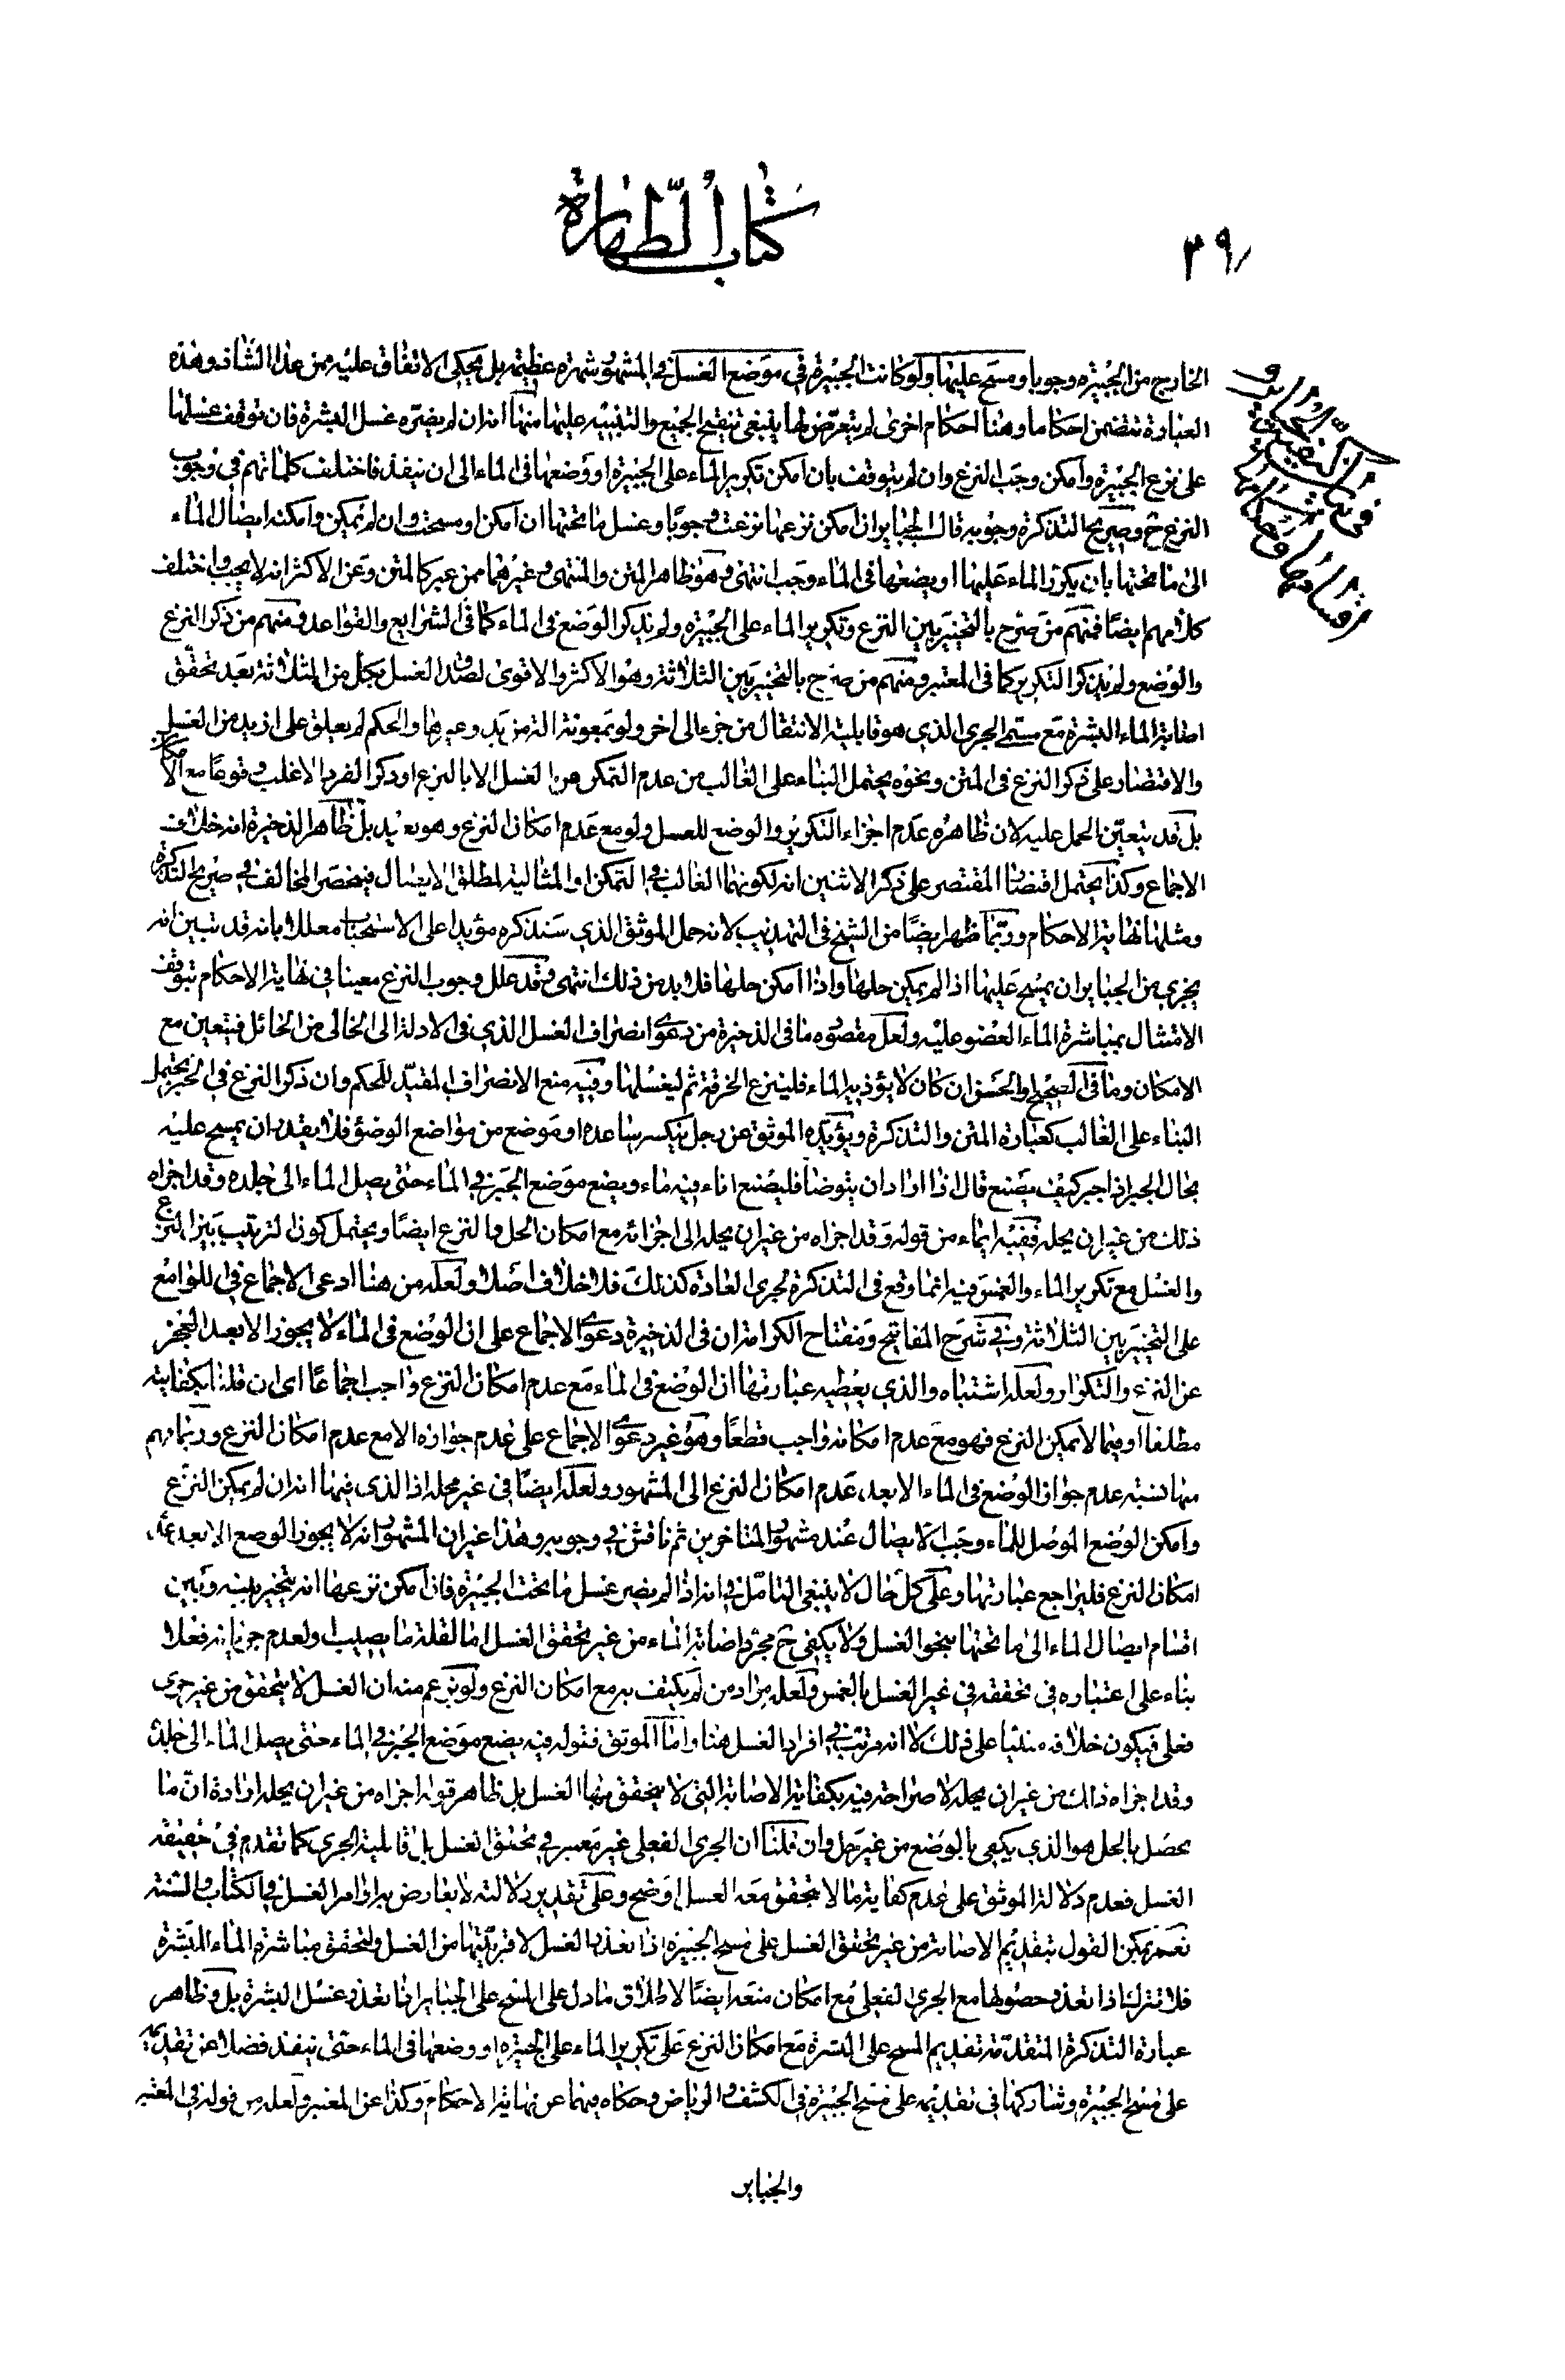 كتاب الطهارة
٣٩
الخارج من الجبيرة وجوبا ومسح عليها ولو كانت الجبيرة في موضع الغسل في المشهور شهرة عظيمة بل يحكى الاتفاق عليه من هذا الشأن وهذه
العبارة تتضمن احكاما وهنا احكام اخرى لم يتعرض لها ينبغي تنقيح الجميع والتنبيه عليها منها انه ان لم يضره غسل البشرة فان توقف غسلها
على نزع الجبيرة وامكن وجب النزع وان لم يتوقف بان امكن تكرير الماء على الجبيرة او وضعها في الماء الى ان ينفذ فاختلف كلماتهم في وجوب
النزع ح وصريح التذكرة وجوبه قال الجباير ان امكن نزعها نزعت وجوبا وغسل ما تحتها ان امكن او مسحت وان لم يمكن وامكنه ايصال الماء
الى ما تحتها بان يكرر الماء عليها او يضعها في الماء وجب انتهى وهو ظاهر المتن والمنتهى وغيرهما ممن عبر كالمتن وعن الاكثر انه لا يجب واختلف
كلامهم ايضا فمنهم من صرح بالتخيير بين النزع وتكرير الماء على الجبيرة ولم يذكر الوضع في الماء كما في الشرايع والقواعد ومنهم من ذكر النزع
والوضع ولم يذكر التكرير كما في المعتبر ومنهم من صرح بالتخيير بين الثلاثة وهو الاكثر والاقوى لصدق الغسل بكل من الثلاثة بعد تحقق
اصابة الماء البشرة مع مسمى الجرى الذي هو قابلية الانتقال من جزء الى اخر ولو بمعونة الة من يد وغيرها والحكم لم يعلق على ازيد من الغسل
والاقتصار على ذكر النزع في المتن ونحوه يحتمل البناء على الغالب من عدم التمكن من الغسل الا بالنزع او ذكر الفرد الاغلب وقوعا مع الامكان
بل قد يتعين الحمل عليه لان ظاهره عدم اجزاء التكرير والوضع للغسل ولو مع عدم امكان النزع وهو بعيد بل ظاهر الذخيرة انه خلاف
الاجماع وكذا يحتمل اقتصار المقتصر على ذكر الاثنين انه لكونهما الغالب في التمكن او المثالية لمطلق الايصال فينحصر المخالف في صريح التذكرة
ومثلها نهاية الاحكام وربما ظهر ايضا من الشيخ في التهذيب لانه حمل الموثق الذي سنذكره مؤيدا على الاستحباب معللا بانه قد تبين انه
يجزي من الجباير ان يمسح عليها اذا لم يمكن حلها واذا امكن حلها فلا بد من ذلك انتهى وقد علل وجوب النزع معينا في نهاية الاحكام بتوقف
الامتثال بمباشرة الماء العضو عليه ولعل مقصوده ما في الذخيرة من دعوى انصراف الغسل الذي في الادلة الى الخالى من الحائل فيتعين مع
الامكان وما في الصحيح او الحسن ان كان لا يؤذيه الماء فلينزع الخرقة ثم ليغسلها وفيه منع الانصراف المقيد للحكم وان ذكر النزع في الخبر يحتمل
البناء على الغالب كعبارة المتن والتذكرة ويؤيده الموثق عن رجل ينكسر ساعده او موضع من مواضع الوضؤ فلا يقدر ان يمسح عليه
بحال الجبر اذا جبر كيف يصنع قال اذا اراد ان يتوضأ فليصنع اناء فيه ماء ويضع موضع الجبر في الماء حتى يصل الماء الى جلده وقد اجزاه
ذلك من غير ان يحله ففيه ايماء من قوله وقد اجزاه من غير ان يحله الى اجزائه مع امكان الحل والنزع ايضا ويحتمل كون الترتيب بين النزع
والغسل مع تكرير الماء والغمس فيه انما وقع في التذكرة لجرى العادة كذلك فلا خلاف اصلا ولعله من هنا ادعى الاجماع في اللوامع
على التخيير بين الثلاثة وفي شرح المفاتيح ومفتاح الكرامة ان في الذخيرة دعوى الاجماع على ان الوضع في الماء لا يجوز الا بعد العجز
عن النزع والتكرار ولعله اشتباه والذي يعطيه عبارتها ان الوضع في الماء مع عدم امكان النزع واجب اجماعا اى ان قلنا بكفايته
مطلقا او فيما لا يمكن النزع فهو مع عدم امكانه واجب قطعا وهو غير دعوى الاجماع على عدم جوازه الا مع عدم امكان النزع وربما يهم
منها نسبة عدم جواز الوضع في الماء الا بعد عدم امكان النزع الى المشهور ولعله ايضا في غير محله اذ الذي فيها انه ان لم يمكن النزع
وامكن الوضع الموصل للماء وجب الايصال عند مشهور المتاخرين ثم ناقش في وجوبه وهذا غير ان المشهور انه لا يجوز الوضع الا بعد عدم
امكان النزع فليراجع عبارتها وعلى كل حال لا ينبغي التامل في انه اذا لم يضر غسل ما تحت الجبيرة فان امكن نزعها انه يتخير بينه وبين
اقسام ايصال الماء الى ما تحتها بنحو الغسل ولا يكفي ح مجرد اصابة الماء من غير تحقق الغسل اما لقلة ما يصيب او لعدم جريانه فعلا
بناء على اعتباره في تحققه في غير الغسل بالغمس ولعله مراد من لم يكتف به مع امكان النزع ولو بزعم منه ان الغسل لا يتحقق من غير جرى
فعلى فيكون خلافه مبنيا على ذلك لا انه مرتب في افراد الغسل هنا واما الموثق فقوله فيه يضع موضع الجبر في الماء حتى يصل الماء الى جلده
وقد اجزاه ذلك من غير ان يحله لا صراحة فيه بكفاية الاصابة التى لا يتحقق بها الغسل بل ظاهر قوله اجزاه من غير ان يحله ارادة ان ما
يحصل بالحل هو الذي يكفي بالوضع من غير حل وان قلنا ان الجرى الفعلى غير معتبر في تحقق الغسل بل قابلية الجرى كما تقدم في حقيقة
الغسل فعدم دلالة الموثق على عدم كفاية ما لا يتحقق معه الغسل اوضح وعلى تقدير دلالته لا يعارض به اوامر الغسل في الكتاب والسنة
نعم يمكن القول بتقديم الاصابة من غير تحقق الغسل على مسح الجبيرة اذا تعذر الغسل لاقربيتها من الغسل ولتحقق مباشرة الماء البشرة
فلا تترك اذا تعذر حصولها مع الجرى الفعلى مع امكان منعه ايضا لاطلاق ما دل على المسح على الجباير اذا تعذر غسل البشرة بل وظاهر
عبارة التذكرة المتقدمة تقديم المسح على البشرة مع امكان النزع على تكرير الماء على الجبيرة او وضعها في الماء حتى ينفذ فضلا عن تقديمه
على مسح الجبيرة وشاركها في تقديمه على مسح الجبيرة في الكشف والرياض وحكاه فيهما عن نهاية الاحكام وكذا عن المعتبر ولعله من قوله في المعتبر
والجباير